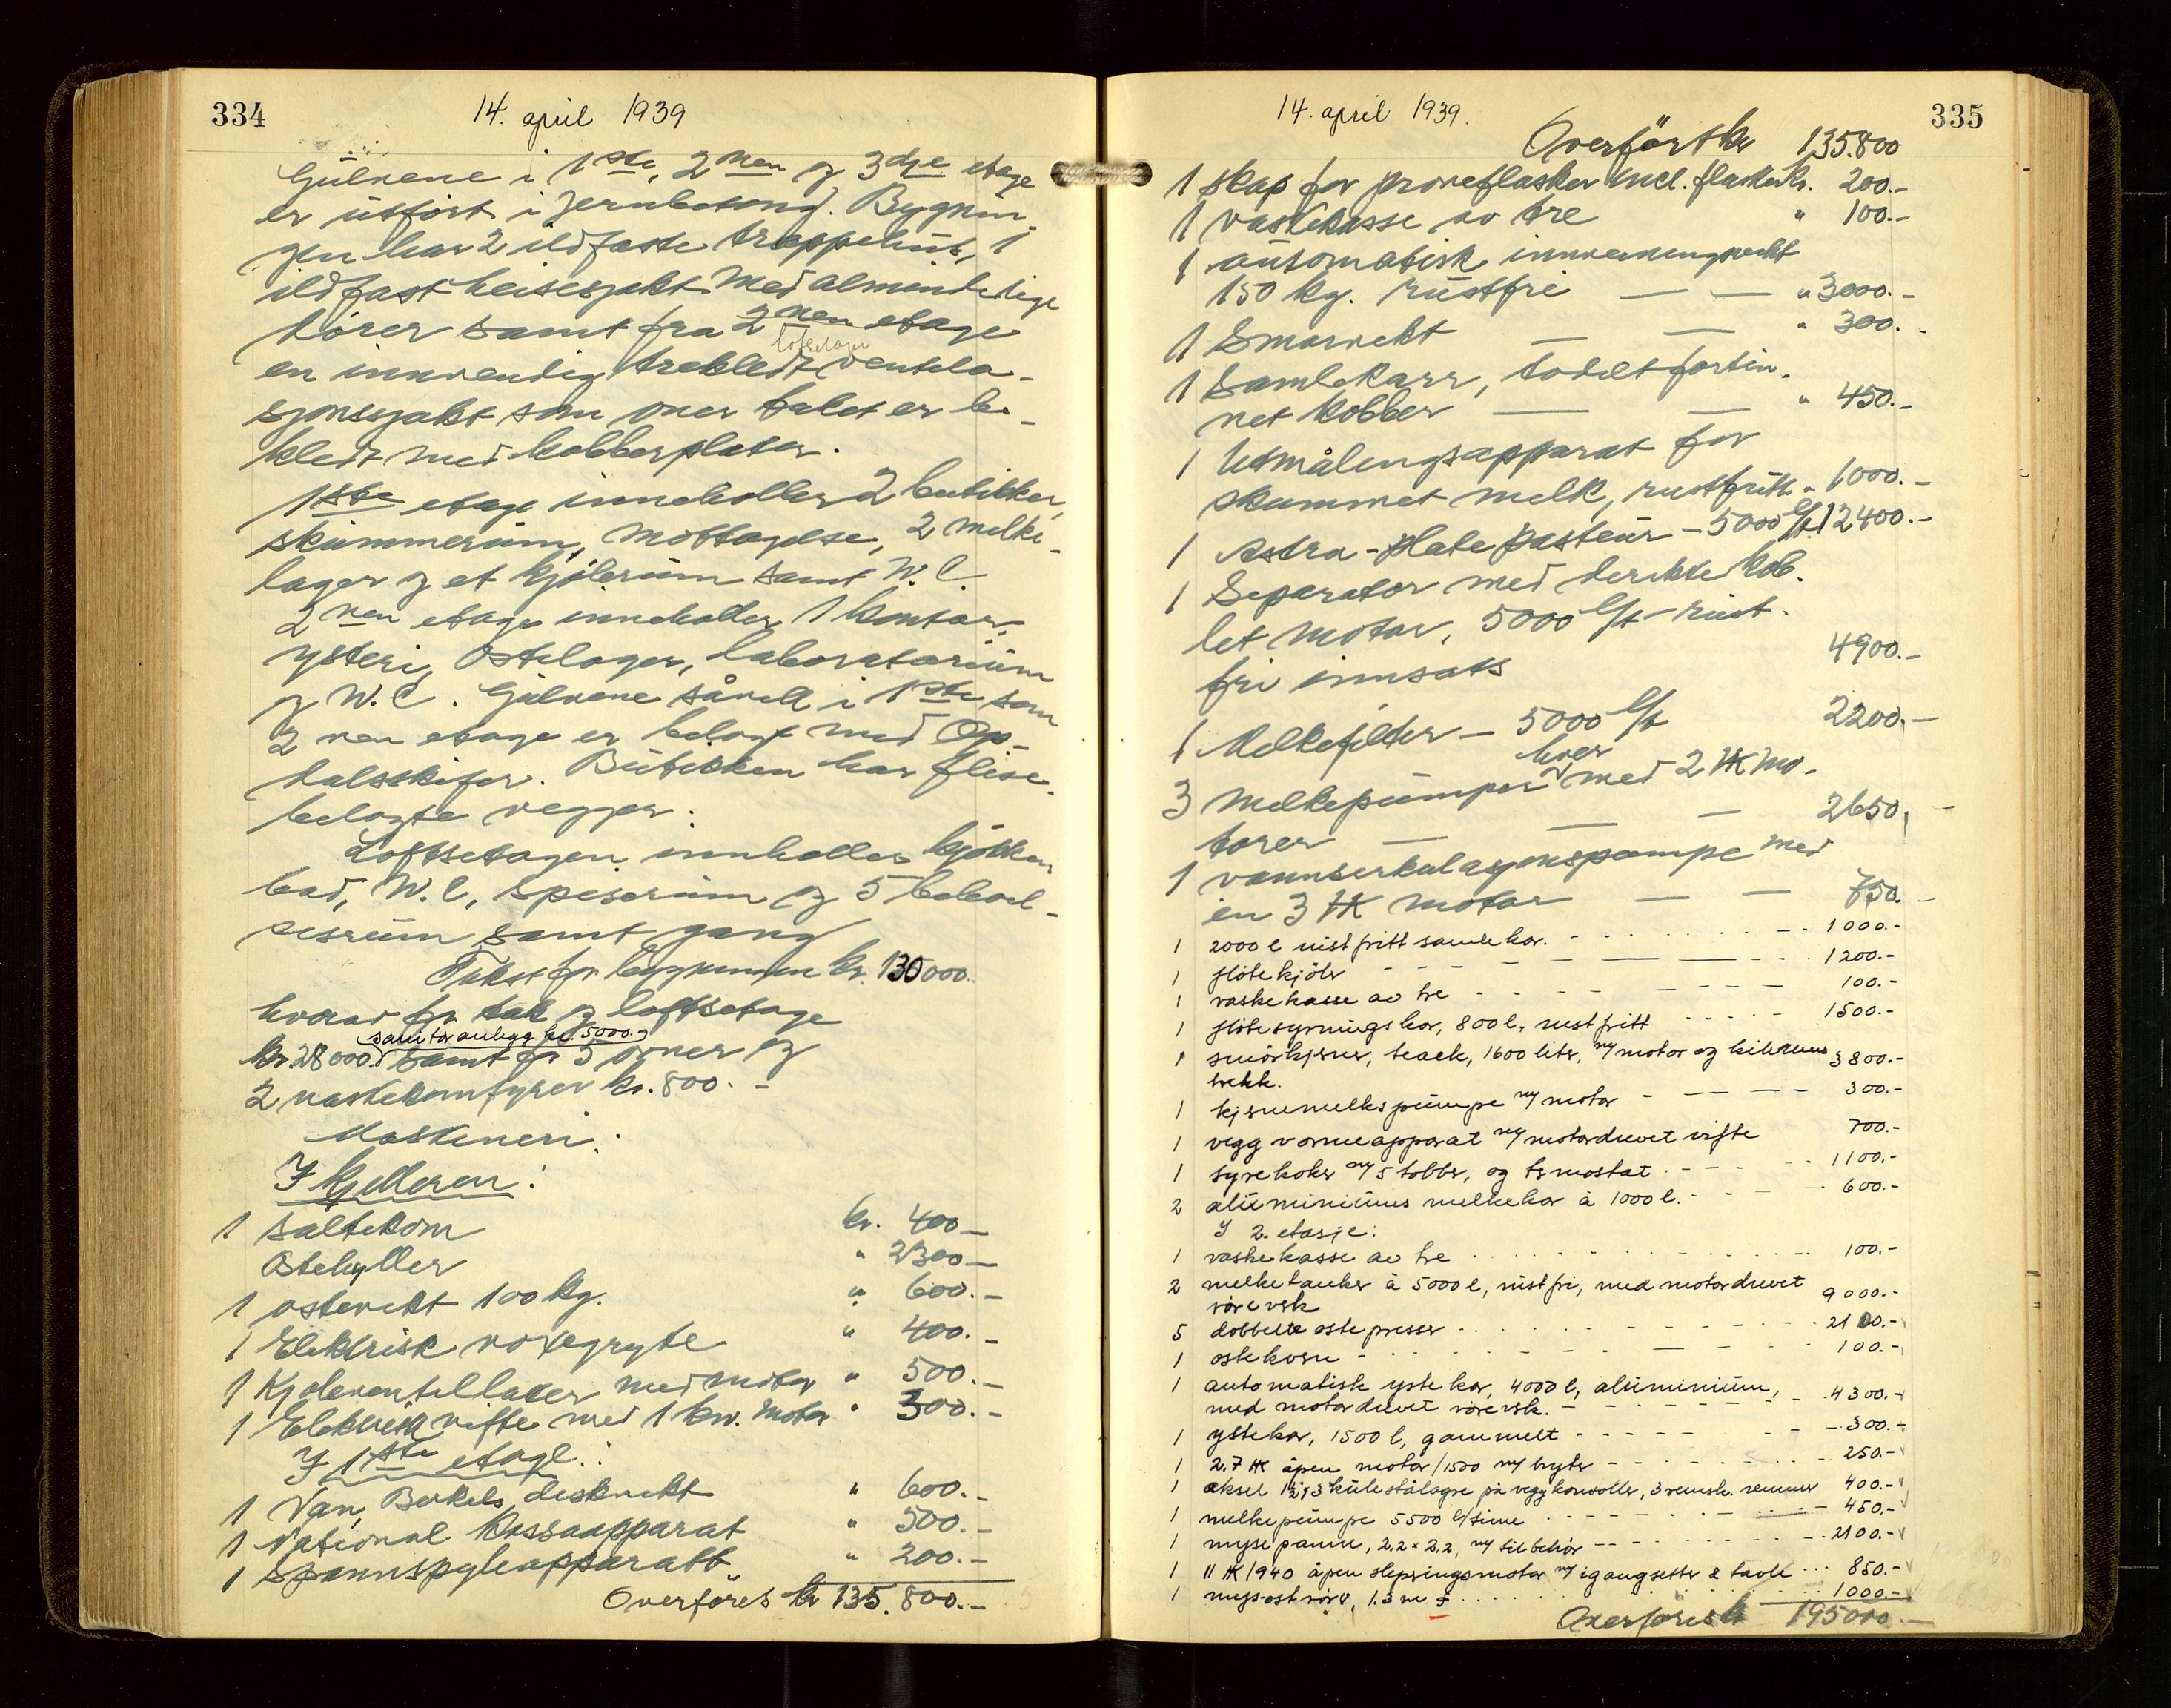 334
14. april 1939
Gülvene i 1ste, 2nen og 3dje etage
er utfört i jernbetong. Bygnin
gen har 2 ildfaste trappehüs, 1
ildfast heisesjakt med almindelige
dörer samt fra 2nen etage
Loftsetage
en innvendig trekledt ventela-
sjonssjakt som over taket er be-
kledt med kobberplater.
1ste etage inneholler 2 butikker,
skümmerüm, mottagelse, 2 melke-
lager og et kjölerüm samt W.C.
2nen etage inneholler 1 kontor,
ysteri, Ostelager, laboratoriüm
og W.C. Gülvene såvell i 1ste som
2nen etage er belagt med Op-
dalsskifer. Bütikken har flise-
belagte vegger.
Loftsetagen innholler kjökken
bad, W.C, spiserüm og 5 beboel-
sesrüm samt gang
Takst for bygningen kr. 130000.
hvorav for tak og loftsetage
sanitæranlegg kr. 5000.-
kr. 28000. samt for 5 ovner og
2 vaskekomfyrer kr. 800.-
Maskineri:
I kjelleren:
1 Saltekom kr. 400-
Ostehyller " 2300-
1 ostevekt 100 kg. " 600.-
1 Elektrisk voxegryte " 400.-
1 Kjöleventillator med motor " 500.-
1 Elektrisk vifte med 1 kw. motor " 300.-
I 1ste etage:
1 Van Berkels diskvekt " 600.-
1 National kassaapparat " 500.-
1 Spannspyleapparatt " 200.-
Overföres kr 135.800.-
14. april 1939.
335
Overfört kr 135.800
1 skap for pröveflasker incl. flasker kr. 200.-
1 vaskekasse av tre " 100.-
1 aütomatisk innveiningsvekt
150 kg. rüstfri — — " 3000.-
1 Smörvekt — — " 300.-
1 Samlekarr, todelt fortin-
net kobber — — " 450.-
1 Utmålingsapparat for
skummet melk, rustfritt " 1000.-
1 Astra-plate pasteür - 5000 l/t. 12400.-
1 Separator med derikte kob-
let motor, 5000 l/t rüst-
fri innsats 4900.-
1 Melkefilter - 5000 l/t 2200.-
hver
3 Melkepümper med 2 HK mo-
torer — — — 2650,-
1 vannserkulasjonspumpe med
en 3 HK motor — — 750.-
1 2000 l rüstfritt samlekar. - 1000.-
1 flötekjöler - 1200.-
1 vaskekasse av tre - 100.-
1 flötesyrningskar, 800 l, rustfritt - 1500.-
1 smörkjerner, teack, 1600 liter, m/ motor og kilerems 3800.-
trekk.
1 kjernemelkspümpe m/ motor - 300.-
1 veggvarmeapparat m/ motordrevet vifte 700.-
1 syrekoker m/ 5 tobber, og termostat - 1100.-
2 alüminiüms melkekar à 1000 l. - 600.-
I 2. etasje:
1 vaskekasse av tre - 100.-
2 melketanker à 5000 l, rüstfri, med motordrevet
röreverk 9000.-
5 dobbelte ostepresser - 2100.-
1 ostekvern - 100.-
1 automatisk ystekar, 4000 l, alüminiüm,
med motordrevet röreverk. - 4300.-
1 ystekar, 1500 l, gammelt - 300.-
1 2.7 HK åpen motor/1500 m/ bryter - 250.-
1 aksel 1 1/2", 3 külestålagre på veggkonsoller, 3 remsk. remmer 400.-
1 melkepümpe 5500 l/time - 450.-
1 mysepanne, 2.2 x 2.2, m/ tilbehör - 2100.-
1 11 HK/940 åpen slepringsmotor m/ igangsetter & tavle 850.-
1 mysoströrer, 1.3 m - 1000.-
Overföres kr 195000.-